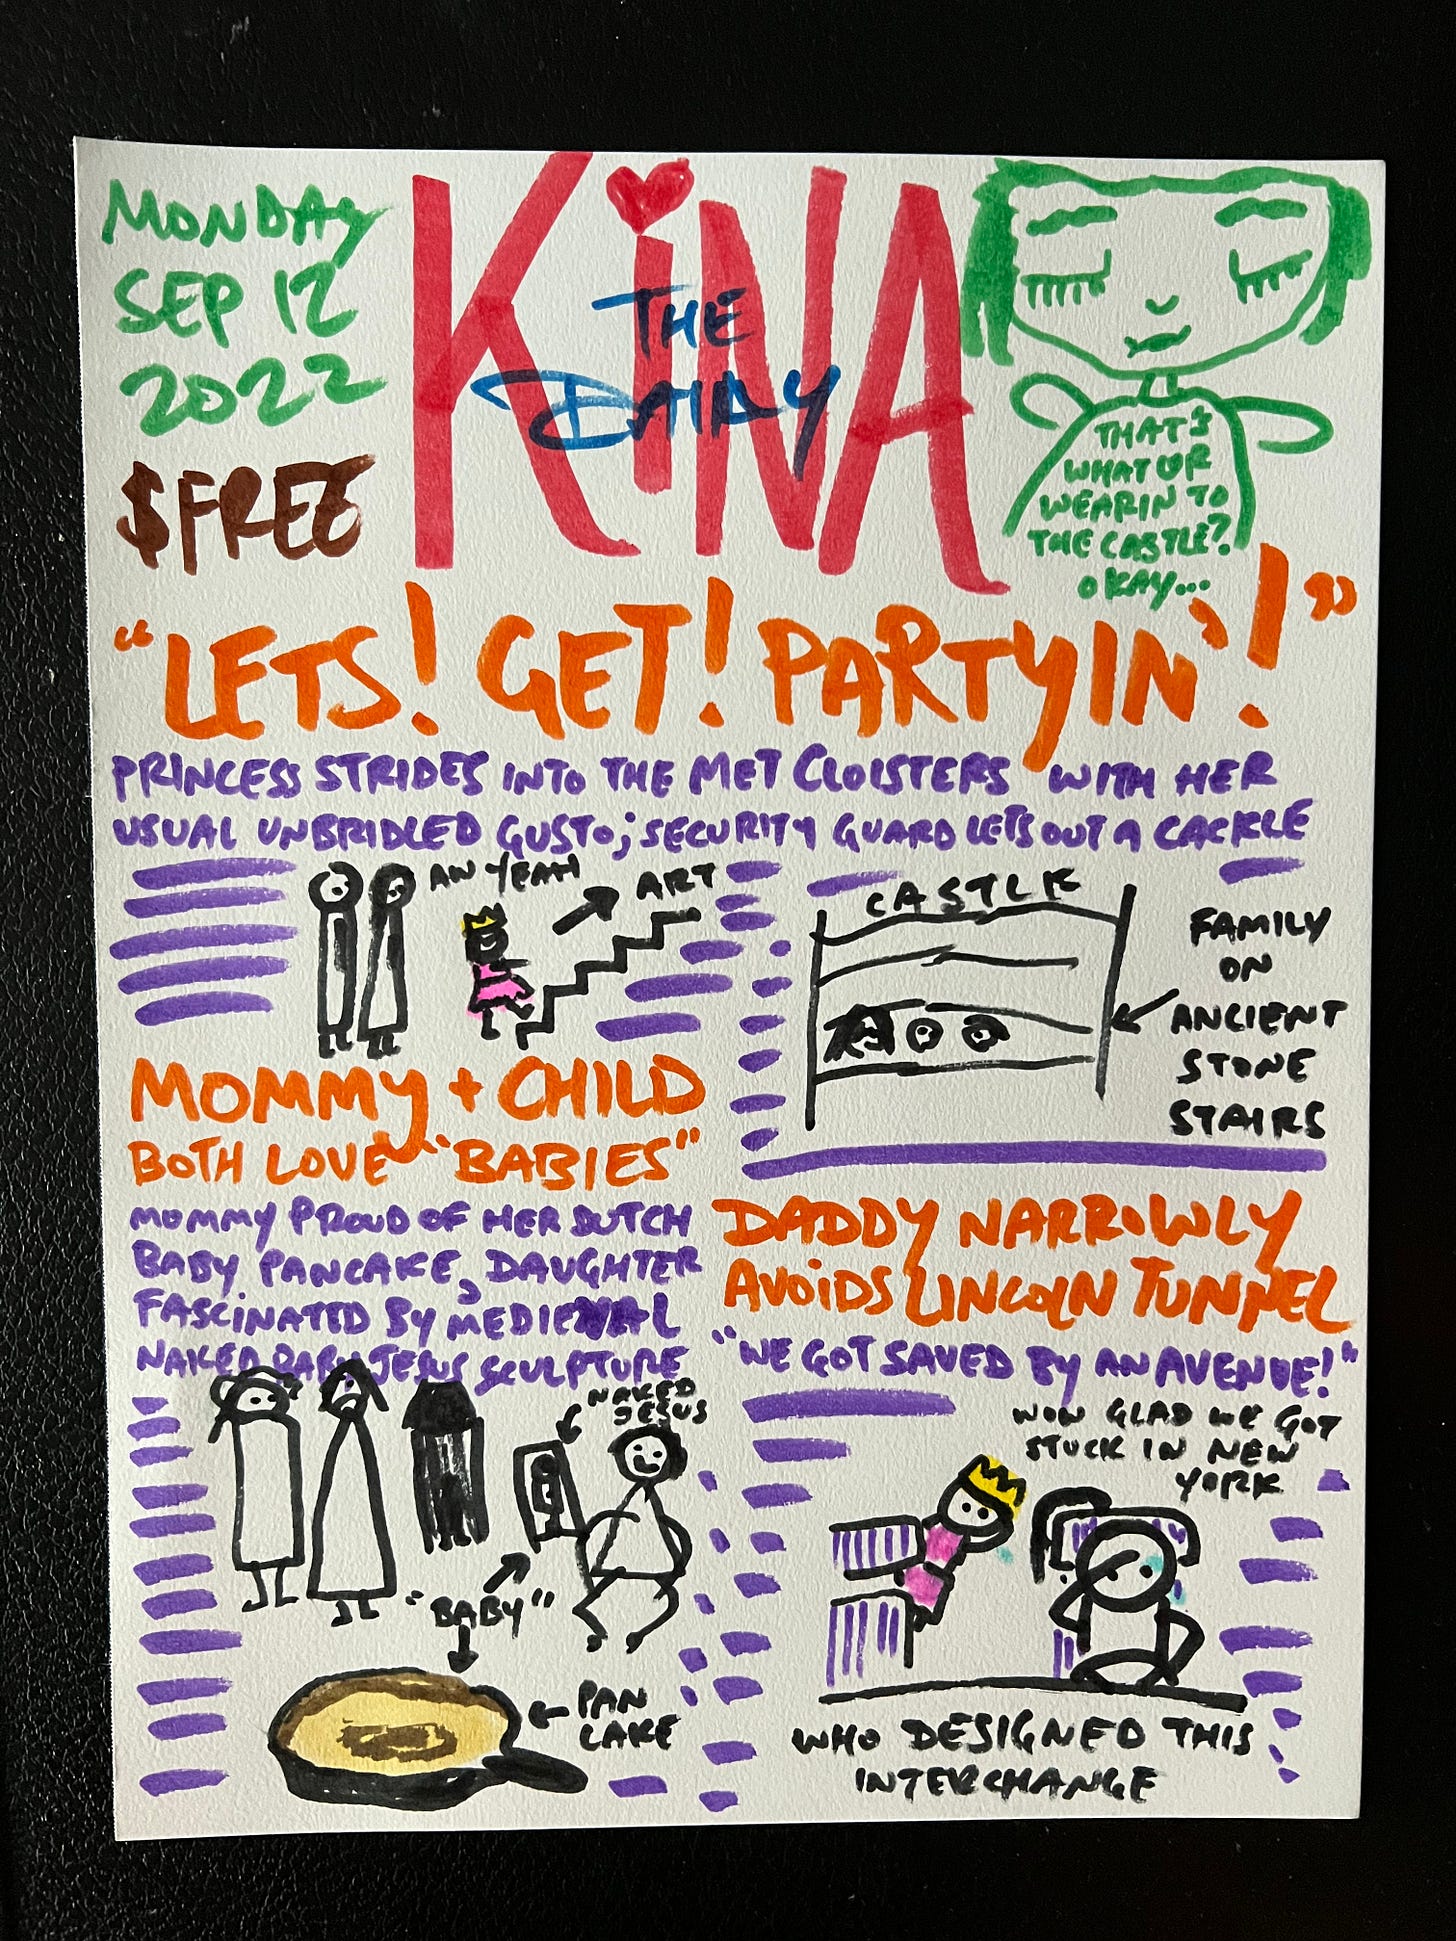 MONDAY
SEP 12
2022
$FREE
KiNA
THE
DAILY
THAT'S
WHAT UR
WEARIN TO
THE CASTLE?
OKAY...
"LETS! GET! PARTYIN'!"
PRINCESS STRIDES INTO THE MET CLOISTERS WITH HER
USUAL UNBRIDLED GUSTO; SECURITY GUARD LETS OUT A CACKLE
AW YEAH
ART
CASTLE
FAMILY
ON
ANCIENT
STONE
STAIRS
MOMMY + CHILD
BOTH LOVE "BABIES"
MOMMY PROUD OF HER DUTCH
BABY PANCAKE, DAUGHTER
FASCINATED BY MEDIEVAL
NAKED BABY JESUS SCULPTURE
NAKED
JESUS
"BABY"
PAN
CAKE
DADDY NARROWLY
AVOiDS LINCOLN TUNNEL
"WE GOT SAVED BY AN AVENUE!"
WOW GLAD WE GOT
STUCK IN NEW
YORK
WHO DESIGNED THIS
INTERCHANGE